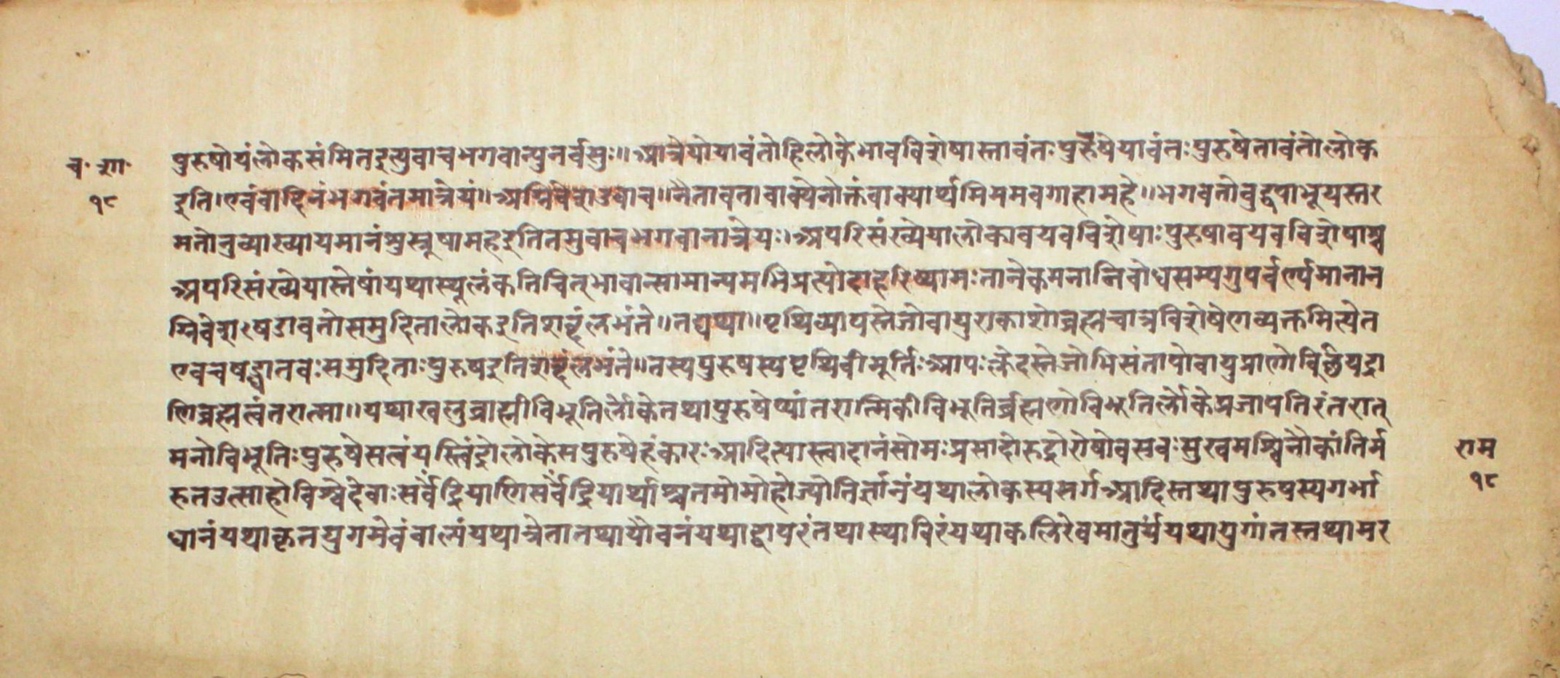 च॰ शा॰
१८
पुरुषोयंलोकसंमितइत्युवाचभगवान्पुनर्वसुः॥आत्रेयोयावंतोहिलोकेभावविशेषास्तावंतःपुरुषेयावंतःपुरुषेतावंतोलोक
इति।एवंवादिनंभगवंतमात्रेयं॥अग्निवेशोउवाच॥नैतावतावाक्येनोक्तंवाक्यार्थमिममवगाहामहे॥भगवतोबुद्ध्याभूयस्तर
मतोनुव्याख्यायमानंशुस्रूषामहइतितमुवाचभगवानात्रेयः।अपरिसंख्येयालोकावयवविशेषाःपुरुषावयवविशेषाश्च
अपरिसंख्येयास्तेषांयथास्थूलंकतिचित्भावान्सामान्यमभिप्रत्योदाहरिष्यामःतानेकमनान्निबोधसम्यगुपवर्ण्यमानान
ग्निवेशषड्धावतोसमुदितालोकइतिशब्दंलभंते॥तद्यथा॥पृथिव्यापस्तेजोवायुराकाशोब्रह्मचात्रविशेषेणव्यक्तमित्येत
एवचषड्धातवःसमुदिताःपुरुषइतिशब्दंलभंते॥तस्यपुरुषस्यपृथिवीमूर्तिःआपःक्लेदस्तेजोभिसंतापोवायुप्राणोविछुयद्रा
णिब्रह्मत्वंतरात्मा॥यथाखलुब्राह्मीविभूतिर्लोकेतथापुरुषेप्यांतरात्मिकीविभूतिर्ब्रह्मणोविभूतिर्लोकेप्रजापतिरंतरात्
मनोविभूतिःपुरुषेसत्वंयस्त्विंद्रोलोकेसपुरुषेहंकारःआदित्यास्त्वादानंसोमःप्रसादोरुद्रोरोषोवसवःसुखमश्विनौकांतिर्म
रुतउत्साहोविश्वेदेवाःसर्वेंद्रियाणिसर्वेंद्रियार्थाश्चतमोमोहोज्योतिर्ज्ञानंयथालोकस्यसर्गआदिस्तथापुरुषस्यगर्भा
धानंयथाकृतयुगमेवंबाल्यंयथात्रेतातथायौवनंयथाद्वापरंतथास्थाविरंयथाकलिरेवमातुर्यंयथायुगांतस्तथामर
राम
१८